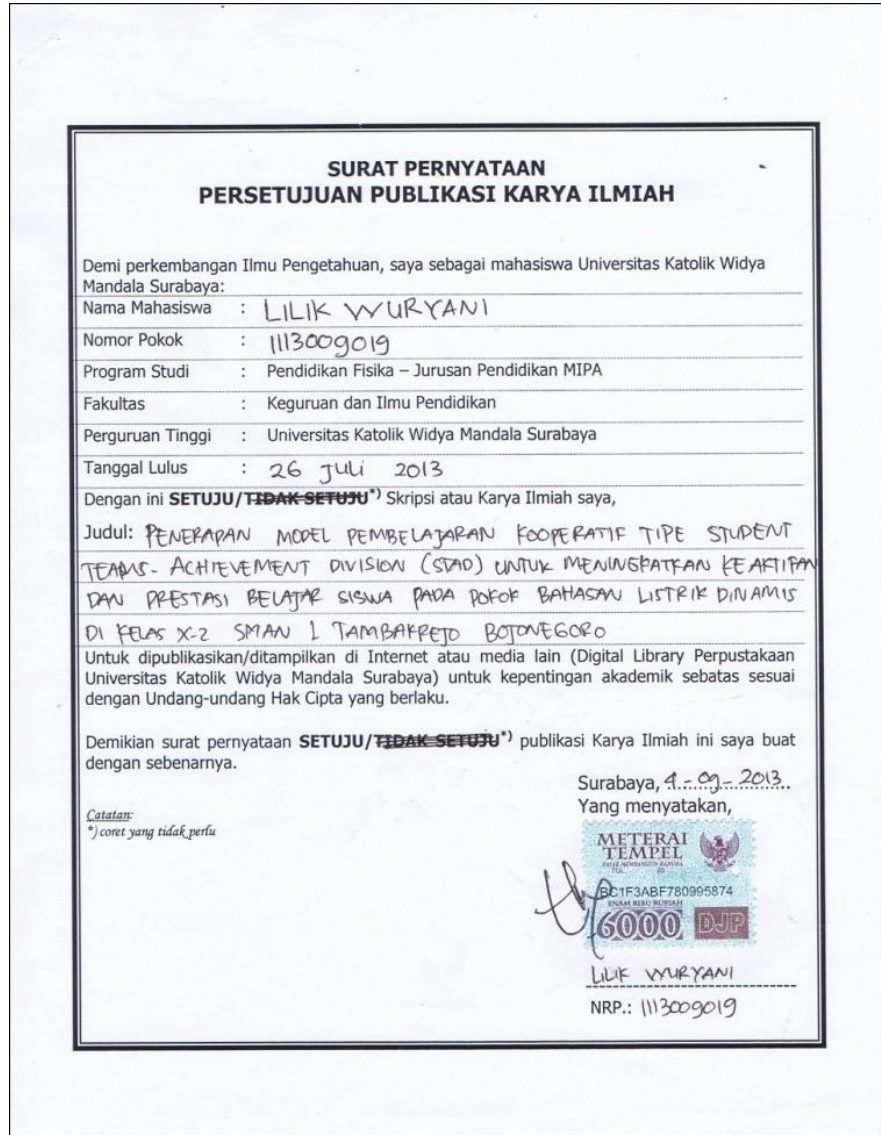 SURAT PERNYATAAN
PERSETUJUAN PUBLIKASI KARYA ILMIAH
Demi perkembangan Ilmu Pengetahuan, saya sebagai mahasiswa Universitas Katolik Widya
Mandala Surabaya:
Nama Mahasiswa : LILIK WURYANI
Nomor Pokok : 1113009019
Program Studi : Pendidikan Fisika – Jurusan Pendidikan MIPA
Fakultas : Keguruan dan Ilmu Pendidikan
Perguruan Tinggi : Universitas Katolik Widya Mandala Surabaya
Tanggal Lulus : 26 JULI 2013
Dengan ini SETUJU/TIDAK SETUJU*) Skripsi atau Karya Ilmiah saya,
Judul: PENERAPAN MODEL PEMBELAJARAN KOOPERATIF TIPE STUDENT
TEAMS- ACHIEVEMENT DIVISION (STAD) UNTUK MENINGKATKAN KEAKTIFAN
DAN PRESTASI BELAJAR SISWA PADA POKOK BAHASAN LISTRIK DINAMIS
DI KELAS X-2 SMAN 1 TAMBAKREJO BOJONEGORO
Untuk dipublikasikan/ditampilkan di Internet atau media lain (Digital Library Perpustakaan
Universitas Katolik Widya Mandala Surabaya) untuk kepentingan akademik sebatas sesuai
dengan Undang-undang Hak Cipta yang berlaku.
Demikian surat pernyataan SETUJU/TIDAK SETUJU*) publikasi Karya Ilmiah ini saya buat
dengan sebenarnya.
Surabaya, 4 - 09 - 2013
Yang menyatakan,
Catatan:
*) coret yang tidak perlu
METERAI
TEMPEL
TGL. 20
BC1F3ABF780995874
ENAM RIBU RUPIAH
6000 DJP
LILIK WURYANI
NRP.: 1113009019